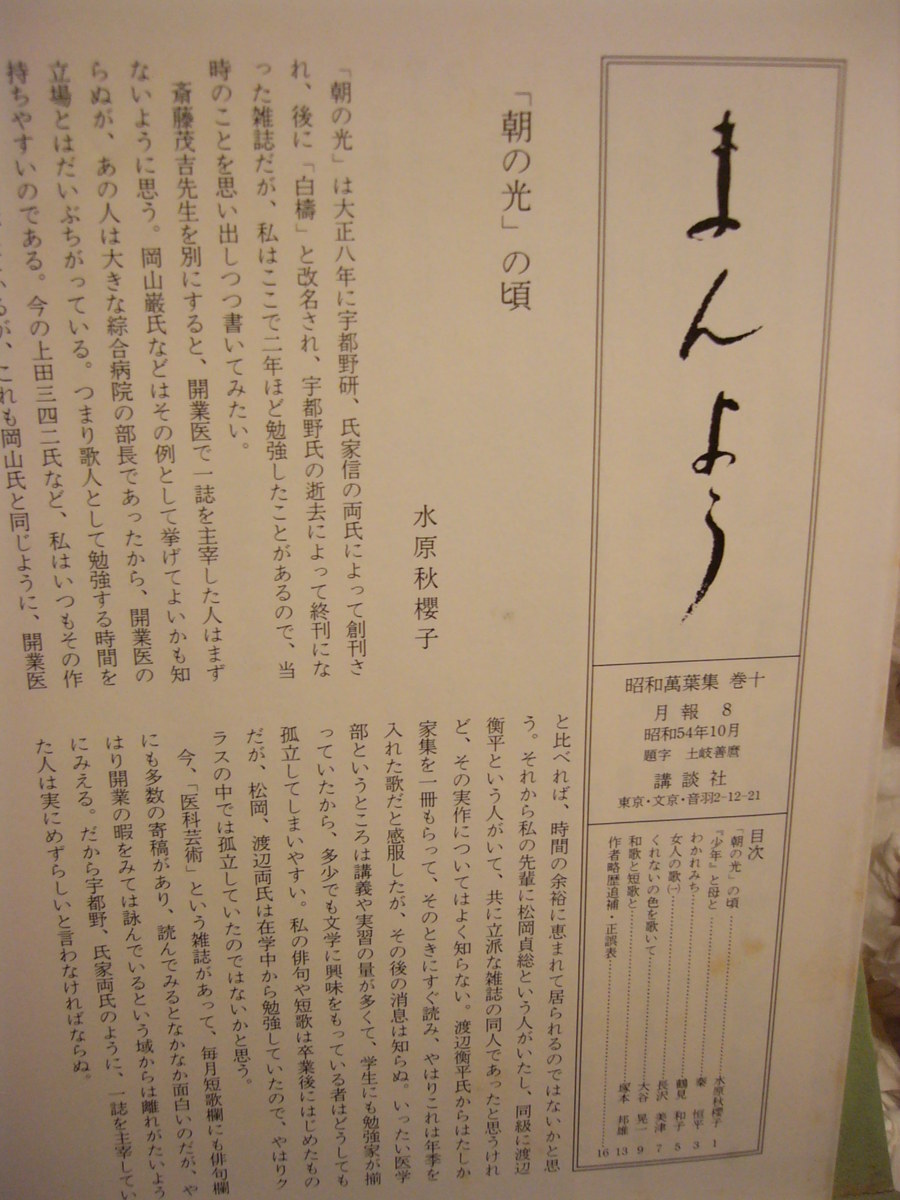 まんよう
昭和萬葉集 巻十
月報 8
昭和54年10月
題字 土岐善麿
講談社
東京・文京・音羽2-12-21
目次
「朝の光」の頃 水原秋櫻子 1
『少年』と母と 秦 恒平 3
わかれみち 鶴見 和子 5
女人の歌㈠ 長沢 美津 7
くれないの色を歌いて 大谷 晃一 9
和歌と短歌と 塚本 邦雄 13
作者略歴追補・正誤表 16
「朝の光」の頃
水原秋櫻子
「朝の光」は大正八年に宇都野研、氏家信の両氏によって創刊さ
れ、後に「白檮」と改名され、宇都野氏の逝去によって終刊にな
った雑誌だが、私はここで二年ほど勉強したことがあるので、当
時のことを思い出しつつ書いてみたい。
斎藤茂吉先生を別にすると、開業医で一誌を主宰した人はまず
ないように思う。岡山巌氏などはその例として挙げてよいかも知
らぬが、あの人は大きな綜合病院の部長であったから、開業医の
立場とはだいぶちがっている。つまり歌人として勉強する時間を
持ちやすいのである。今の上田三四二氏など、私はいつもその作
るが、これも岡山氏と同じように、開業医
と比べれば、時間の余裕に恵まれて居られるのではないかと思
う。それから私の先輩に松岡貞総という人がいたし、同級に渡辺
衡平という人がいて、共に立派な雑誌の同人であったと思うけれ
ど、その実作についてはよく知らない。渡辺衡平氏からはたしか
家集を一冊もらって、そのときにすぐ読み、やはりこれは年季を
入れた歌だと感服したが、その後の消息は知らぬ。いったい医学
部というところは講義や実習の量が多くて、学生にも勉強家が揃
っていたから、多少でも文学に興味をもっている者はどうしても
孤立してしまいやすい。私の俳句や短歌は卒業後にはじめたもの
だが、松岡、渡辺両氏は在学中から勉強していたので、やはりク
ラスの中では孤立していたのではないかと思う。
今、「医科芸術」という雑誌があって、毎月短歌欄にも俳句欄
にも多数の寄稿があり、読んでみるとなかなか面白いのだが、や
はり開業の暇をみては詠んでいるという域からは離れがたいよう
にみえる。だから宇都野、氏家両氏のように、一誌を主宰してい
た人は実にめずらしいと言わなければならぬ。